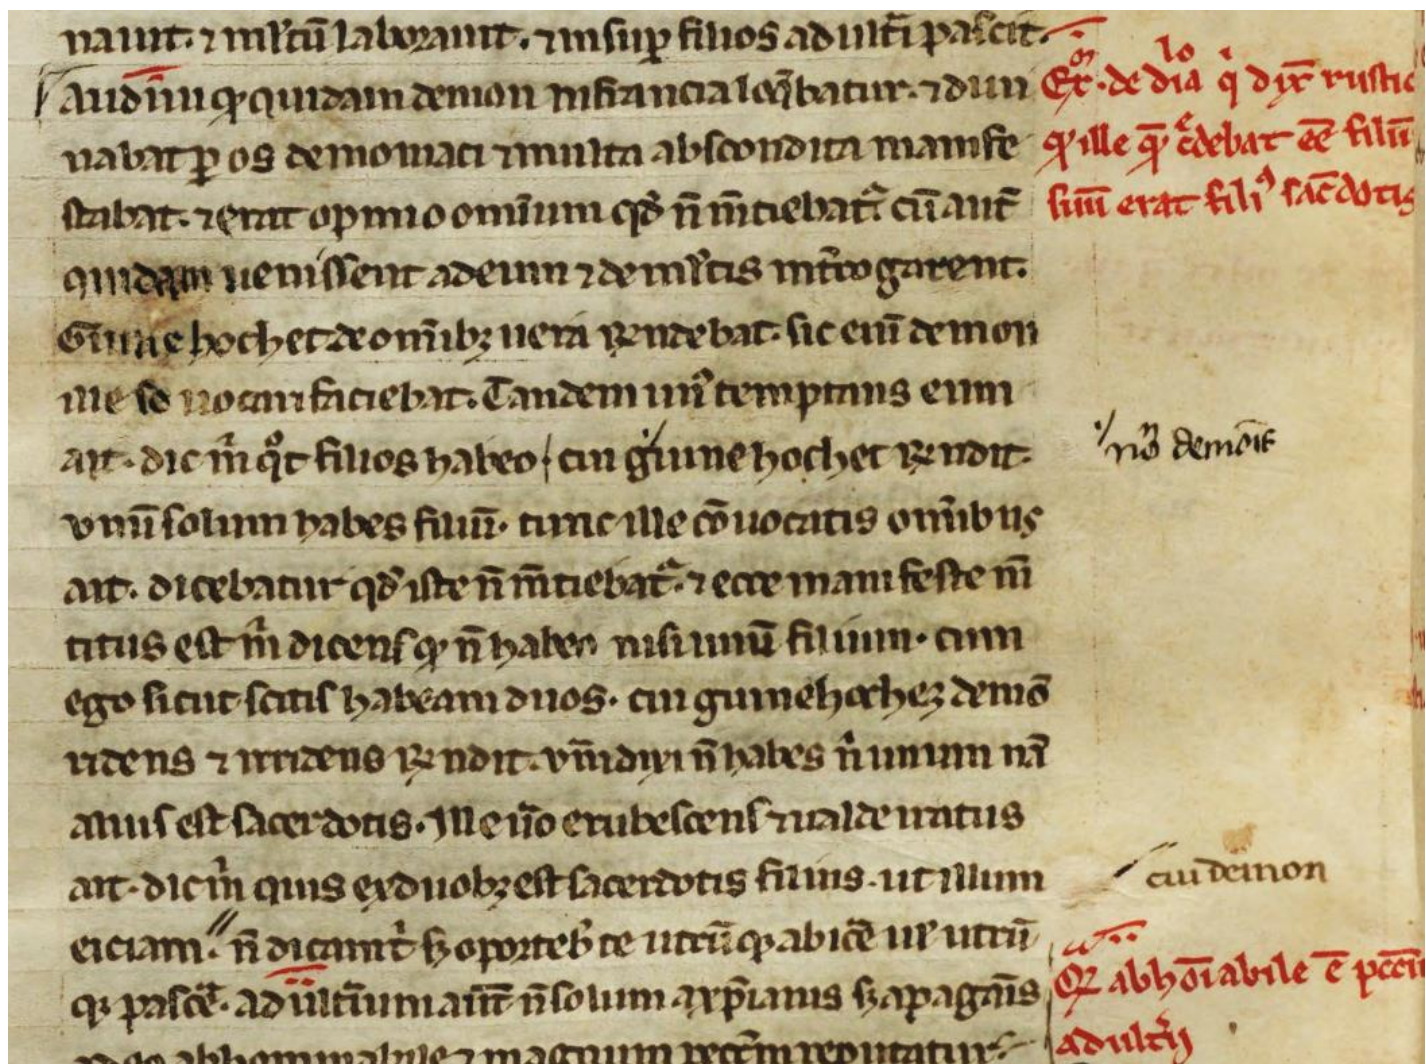 nauit. ⁊ ml̅tu̅ laborauit. ⁊ insup̲ filios adult̅i pascit.
Audiui ꝙ quidam demon in francia loq̅batur. ⁊ diui
nabat ꝑ os demoniaci ⁊ multa abscondita manife
stabat. ⁊ erat opinio omnium qd̅ n̅ m̅tiebat᷑. cu̅ aut̅
quidam uenissent ad eum ⁊ de ml̅tis int̅rogarent.
Guinehochet de om̅ibꝫ uera r̅ndebat. sic eni̅ demon
ille se uocari faciebat. Tandem un᷒ temptans eum
ait. dic m̅ qͦt filios habeo / cui guinehochet r̅ndit.
vnu̅ solum habes filiu̅. tunc ille co̅uocatis om̅ibus
ait. dicebatur qd̅ iste n̅ m̅tiebat᷑. ⁊ ecce manifeste m̅
titus est m̅ dicens ꝙ n̅ habeo nisi unu̅ filium. cum
ego sicut scitis habeam duos. cui guinehochez demo̅
ridens ⁊ irridens r̅ndit. vm̅ dixi n̅ habes n̅ unum na̅
alius est sacerdotis. Ille u̅o erubescens ⁊ ualde iratus
ait. dic m̅ quis ex duobꝫ est sacerdotis filius. ut illum
eiciam. n̅ dicam t̅ sꝫ oporteb̅ te utru̅qꝫ abice̅ ul̅ utru̅
qꝫ pasce̅. adulterium aut̅ n̅ solum a xp̅ianis sꝫ a pagan̅s
adeo abhominabile ⁊ magnum pecc̅m reputatur
Ex̅. de dia
lo
q̇ dix̅ rustic
ꝙ ille que̅ c̅debat ee̅ filiu̅
suu̅ erat fili᷒ sac̅dotis
demo̅is
cui demon
Qꝫ abho̅i̅abile e̅ pcc̅m
adult̅ij